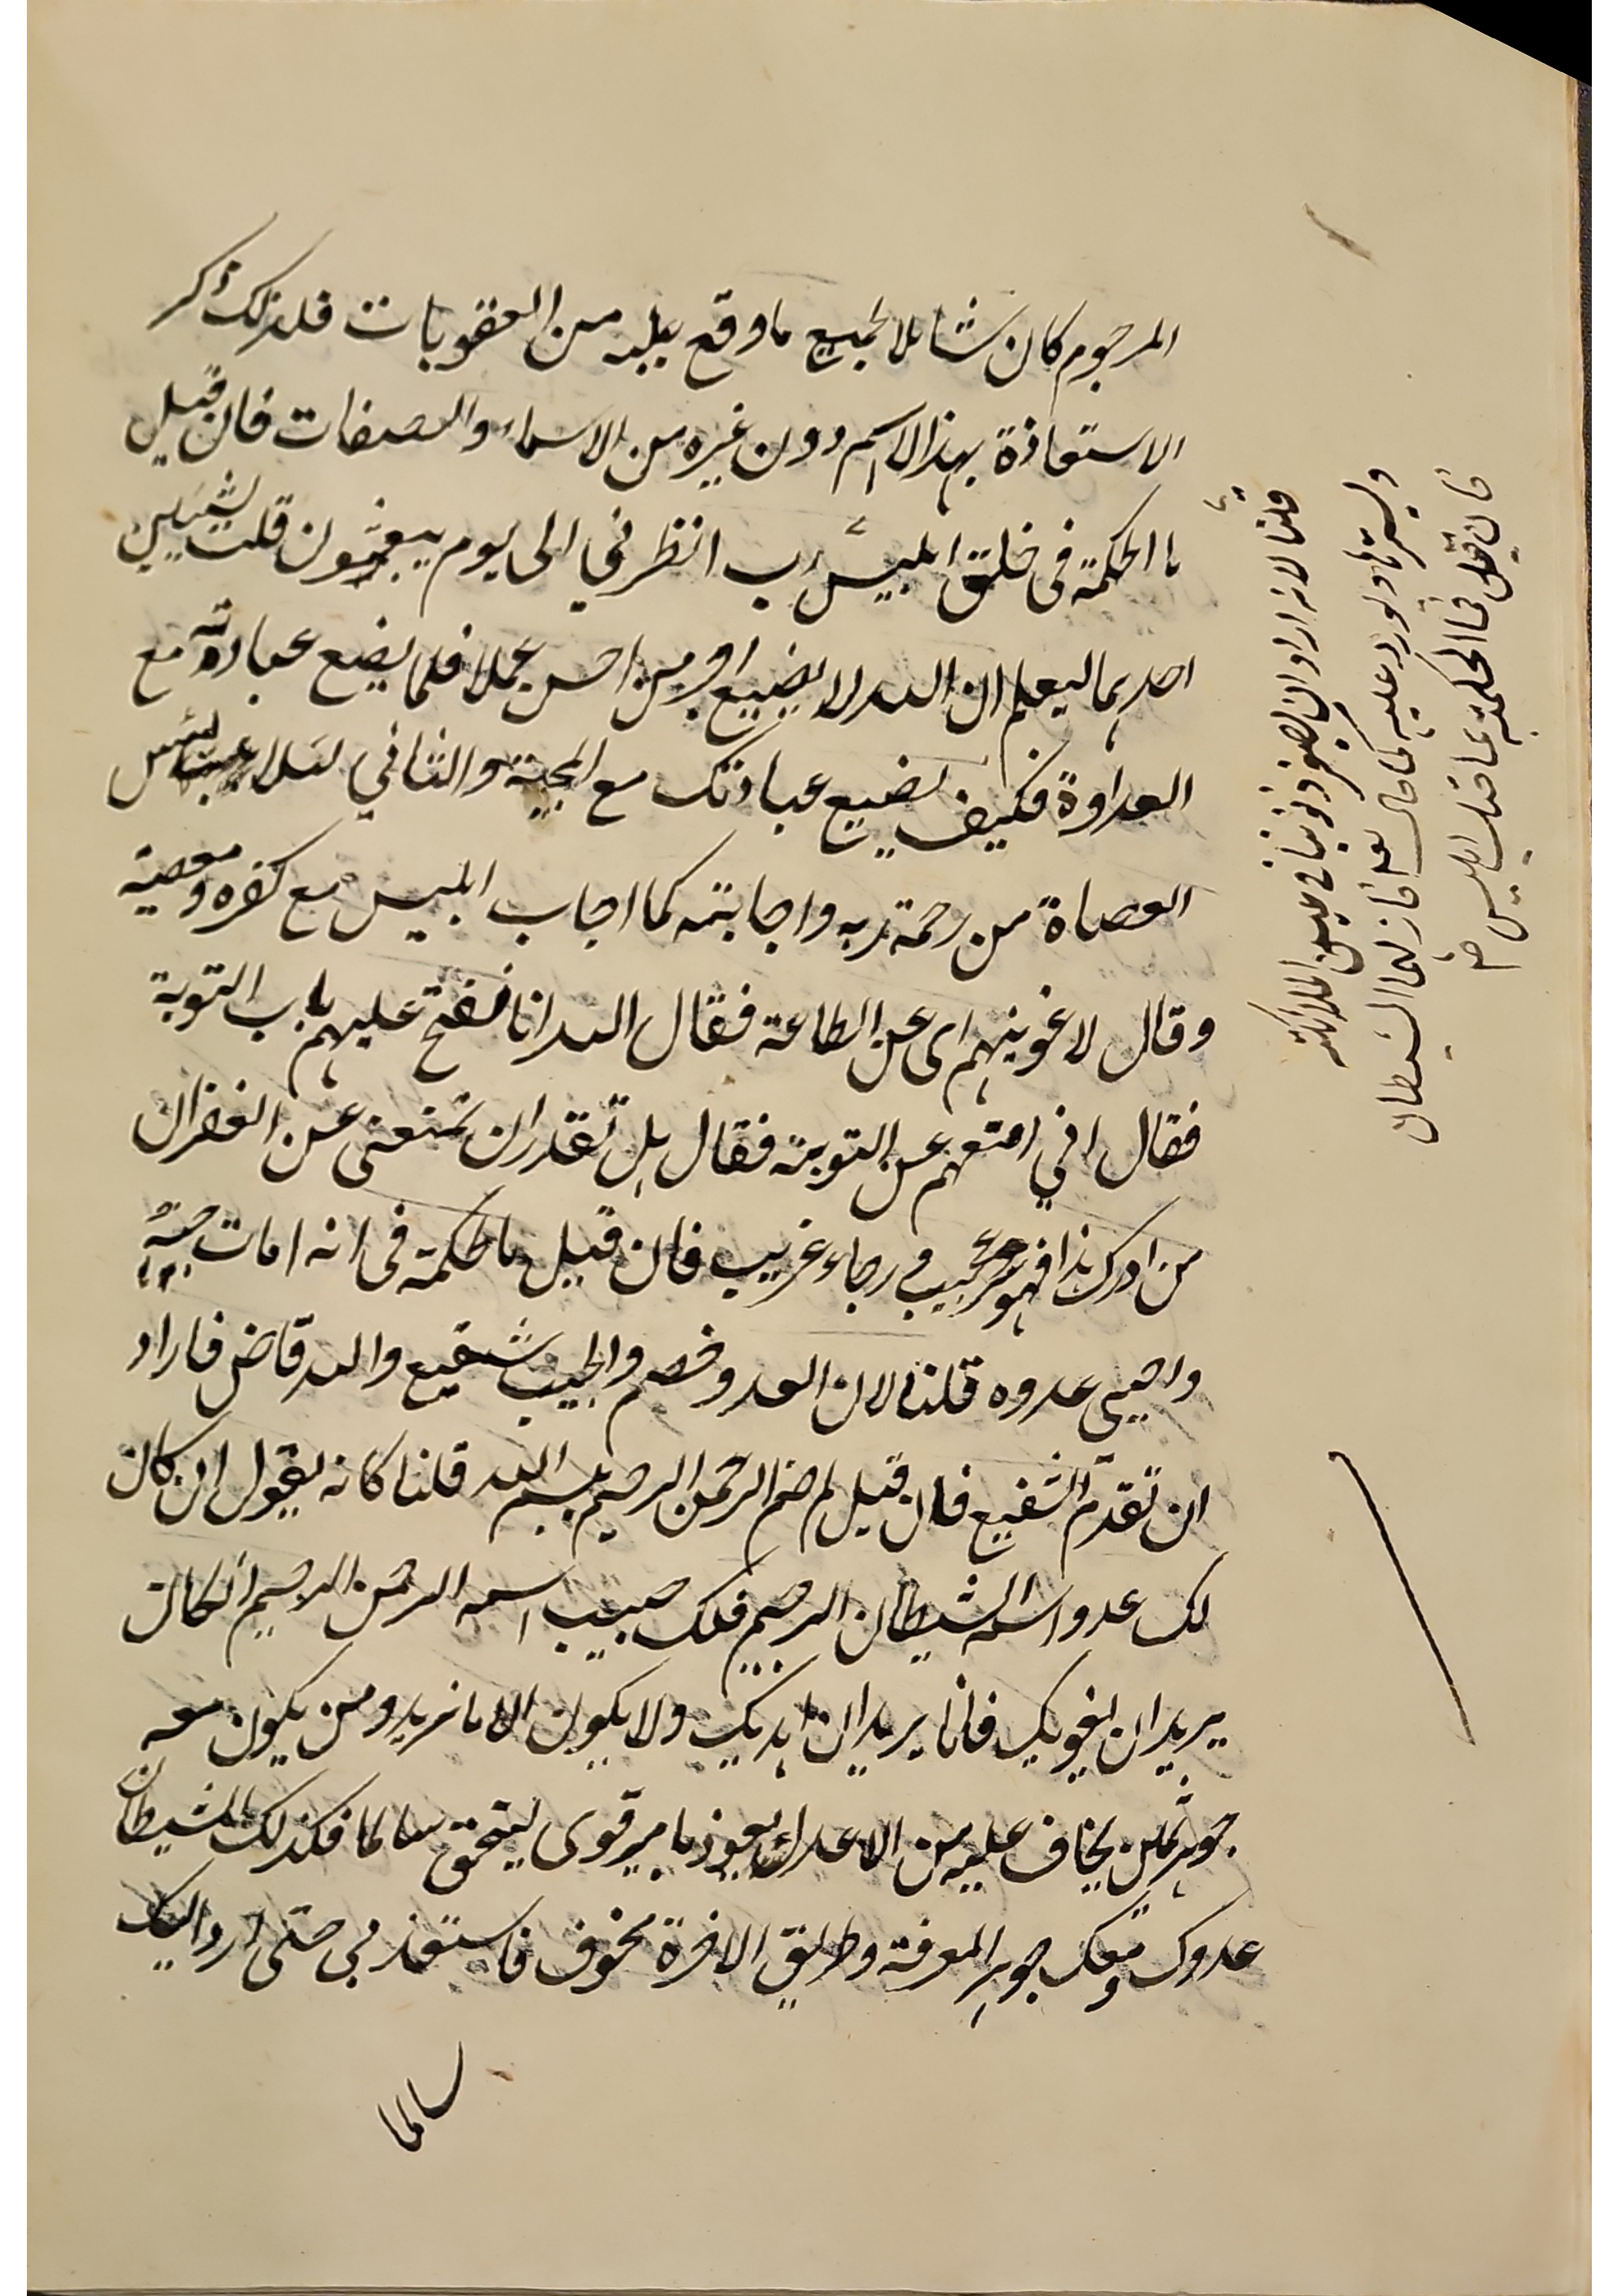 المرجوم كان شاملا لجميع ما وقع عليه من العقوبات فلذلك ذكر
الاستعاذة بهذا الاسم دون غيره من الاسماء والصفات فان قيل
ما الحكمة فى خلق ابليس رب انظرني الى يوم يبعثون قلت لشيئين
احدهما ليعلم ان الله لا يضيع اجر من احسن عملا فلما يضع عبادته مع
العداوة فكيف يضيع عبادتك مع المحبة والثاني لئلا ييئس
العصاة من رحمة ربه واجابته كما اجاب ابليس مع كفره ومعصية
وقال لاغوينهم اى عن الطاعة فقال الله انا نفتح عليهم باب التوبة
فقال اني امتعهم عن التوبة فقال هل تقدر ان تمنعنى عن الغفران
من ادرك هذا فهو عجيب فى رجاء غريب فان قيل ما الحكمة فى انه امات حبيبه
واحيى عدوه قلنا لان العدو خصم والحبيب شفيع والله قاض فاراد
ان تقدم الشفيع فان قيل لم ضم الرحمن الرحيم ببسم الله قلنا كانه يقول ان كان
لك عدو اسمه الشيطان الرجيم فلك حبيب اسمه الرحمن الرحيم ان كان
يريد ان يغويك فانا يريد ان اهديك ولا يكون الا ما نريد ومن يكون معه
جوهر ثمين يخاف عليه من الاعداء يعوذ بامير قوى ليتحق سالما فكذلك الشيطان
عدوك ومعك جوهر المعرفة وطريق الاخرة مخوف فاستعذ بى حتى ارد اليك
سالما
فان قيل فما الحكمة
قلنا لانه اراد ان يغفر ذنوبنا
فازلهما الشيطان